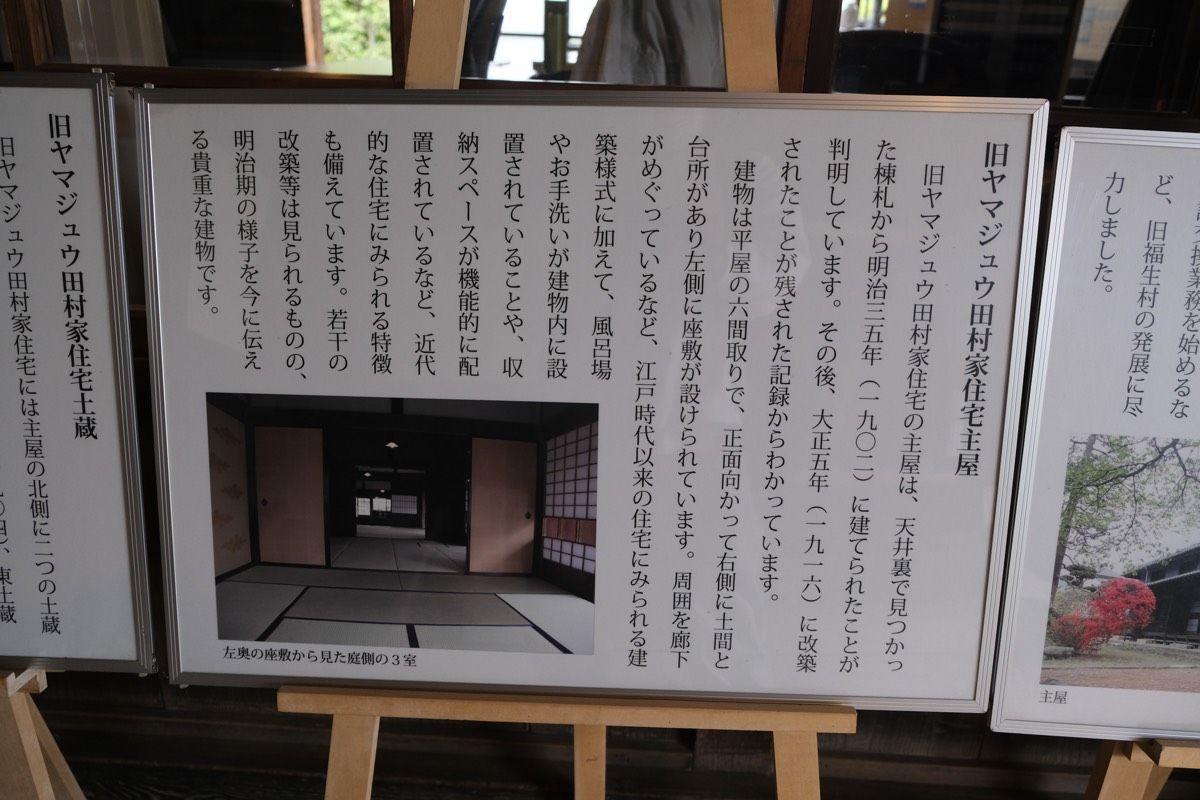 ど、旧福生村の発展に尽
力しました。
主屋
旧ヤマジュウ田村家住宅主屋
旧ヤマジュウ田村家住宅の主屋は、天井裏で見つかっ
た棟札から明治三五年（一九〇二）に建てられたことが
判明しています。その後、大正五年（一九一六）に改築
されたことが残された記録からわかっています。
建物は平屋の六間取りで、正面向かって右側に土間と
台所があり左側に座敷が設けられています。周囲を廊下
がめぐっているなど、江戸時代以来の住宅にみられる建
築様式に加えて、風呂場
やお手洗いが建物内に設
置されていることや、収
納スペースが機能的に配
置されているなど、近代
的な住宅にみられる特徴
も備えています。若干の
改築等は見られるものの、
明治期の様子を今に伝え
る貴重な建物です。
左奥の座敷から見た庭側の３室
旧ヤマジュウ田村家住宅土蔵
旧ヤマジュウ田村家住宅には主屋の北側に二つの土蔵